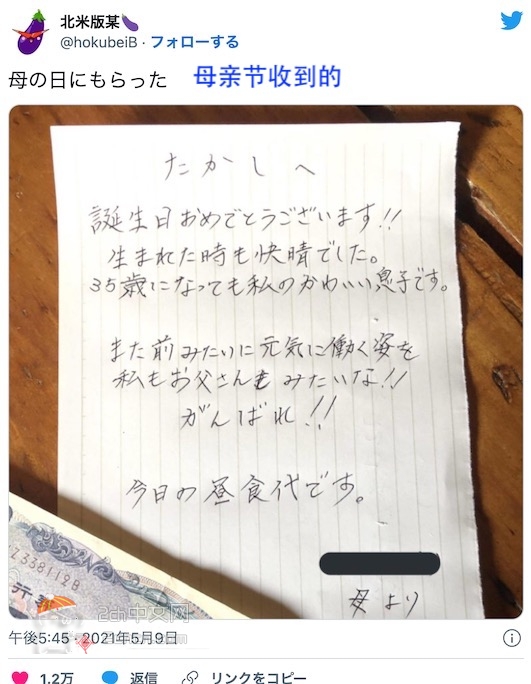 北米版某🍆
@hokubeiB · フォローする
母の日にもらった 母亲节收到的
たかしへ
誕生日おめでとうございます!!
生まれた時も快晴でした。
35歳になっても私のかわいい息子です。
また前みたいに元気に働く姿を
私もお父さんも みたいな!!
がんばれ!!
今日の昼食代です。
母より
Z3381128
2ch中文网
午後5:45 · 2021年5月9日
1.2万 返信 リンクをコピー